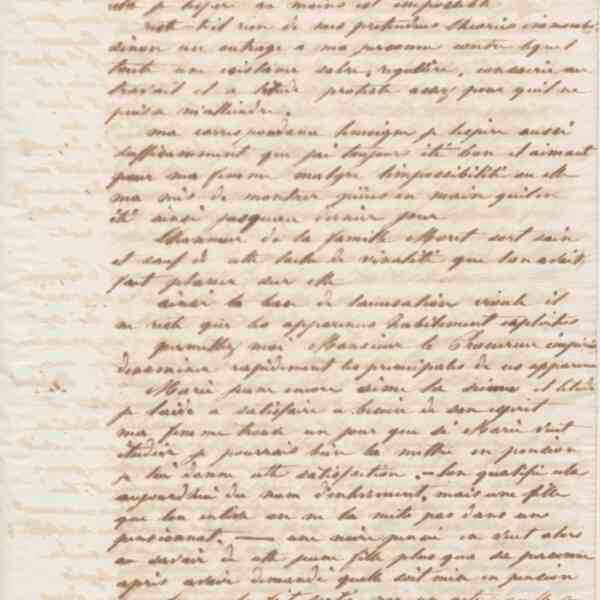 elle je l'espère au moins est impossible
reste t-il rien de mes prétendus théories
sinon un outrage a ma personne contre lequel
toute une existance sobre, régulière, consacrée au
travail et a l'étude proteste assez pour qu'il ne
puisse m'atteindre.
ma correspondance temoigne je l'espère aussi
suffisamment que j'ai toujours été bon et aimant
pour ma femme malgre l'impossibilité ou elle
ma mis de montrer pièces en main qu'il en
été ainsi jusqu'au dernier jour
L'honneur de la famille Moret sort sain
et sauf de cette tache de vénalité que l'on avait
fait planer sur elle
ainsi la base de l'accusation croule il
ne reste que les apparences habilement exploitées
permettez moi Monsieur le Procureur impérial
d'examiner rapidement les principales de ces apparences
Marie jeune encore aime la science et l'étude
je laisse a satisfaire a besoin de son esprit
ma femme trouve un jour que si Marie veut
étudier je pourrais bien la mettre en pension
je lui donne cette satisfaction. — l'on qualifie cela
aujourdhui du nom d'enlevement, mais une fille
que l'on enlève on ne la mets pas dans un
pensionnat. — une noire pensée en veut alors
a savoir de cette jeune fille plus que sa personne
après avoir demandé quelle soit mise en pension